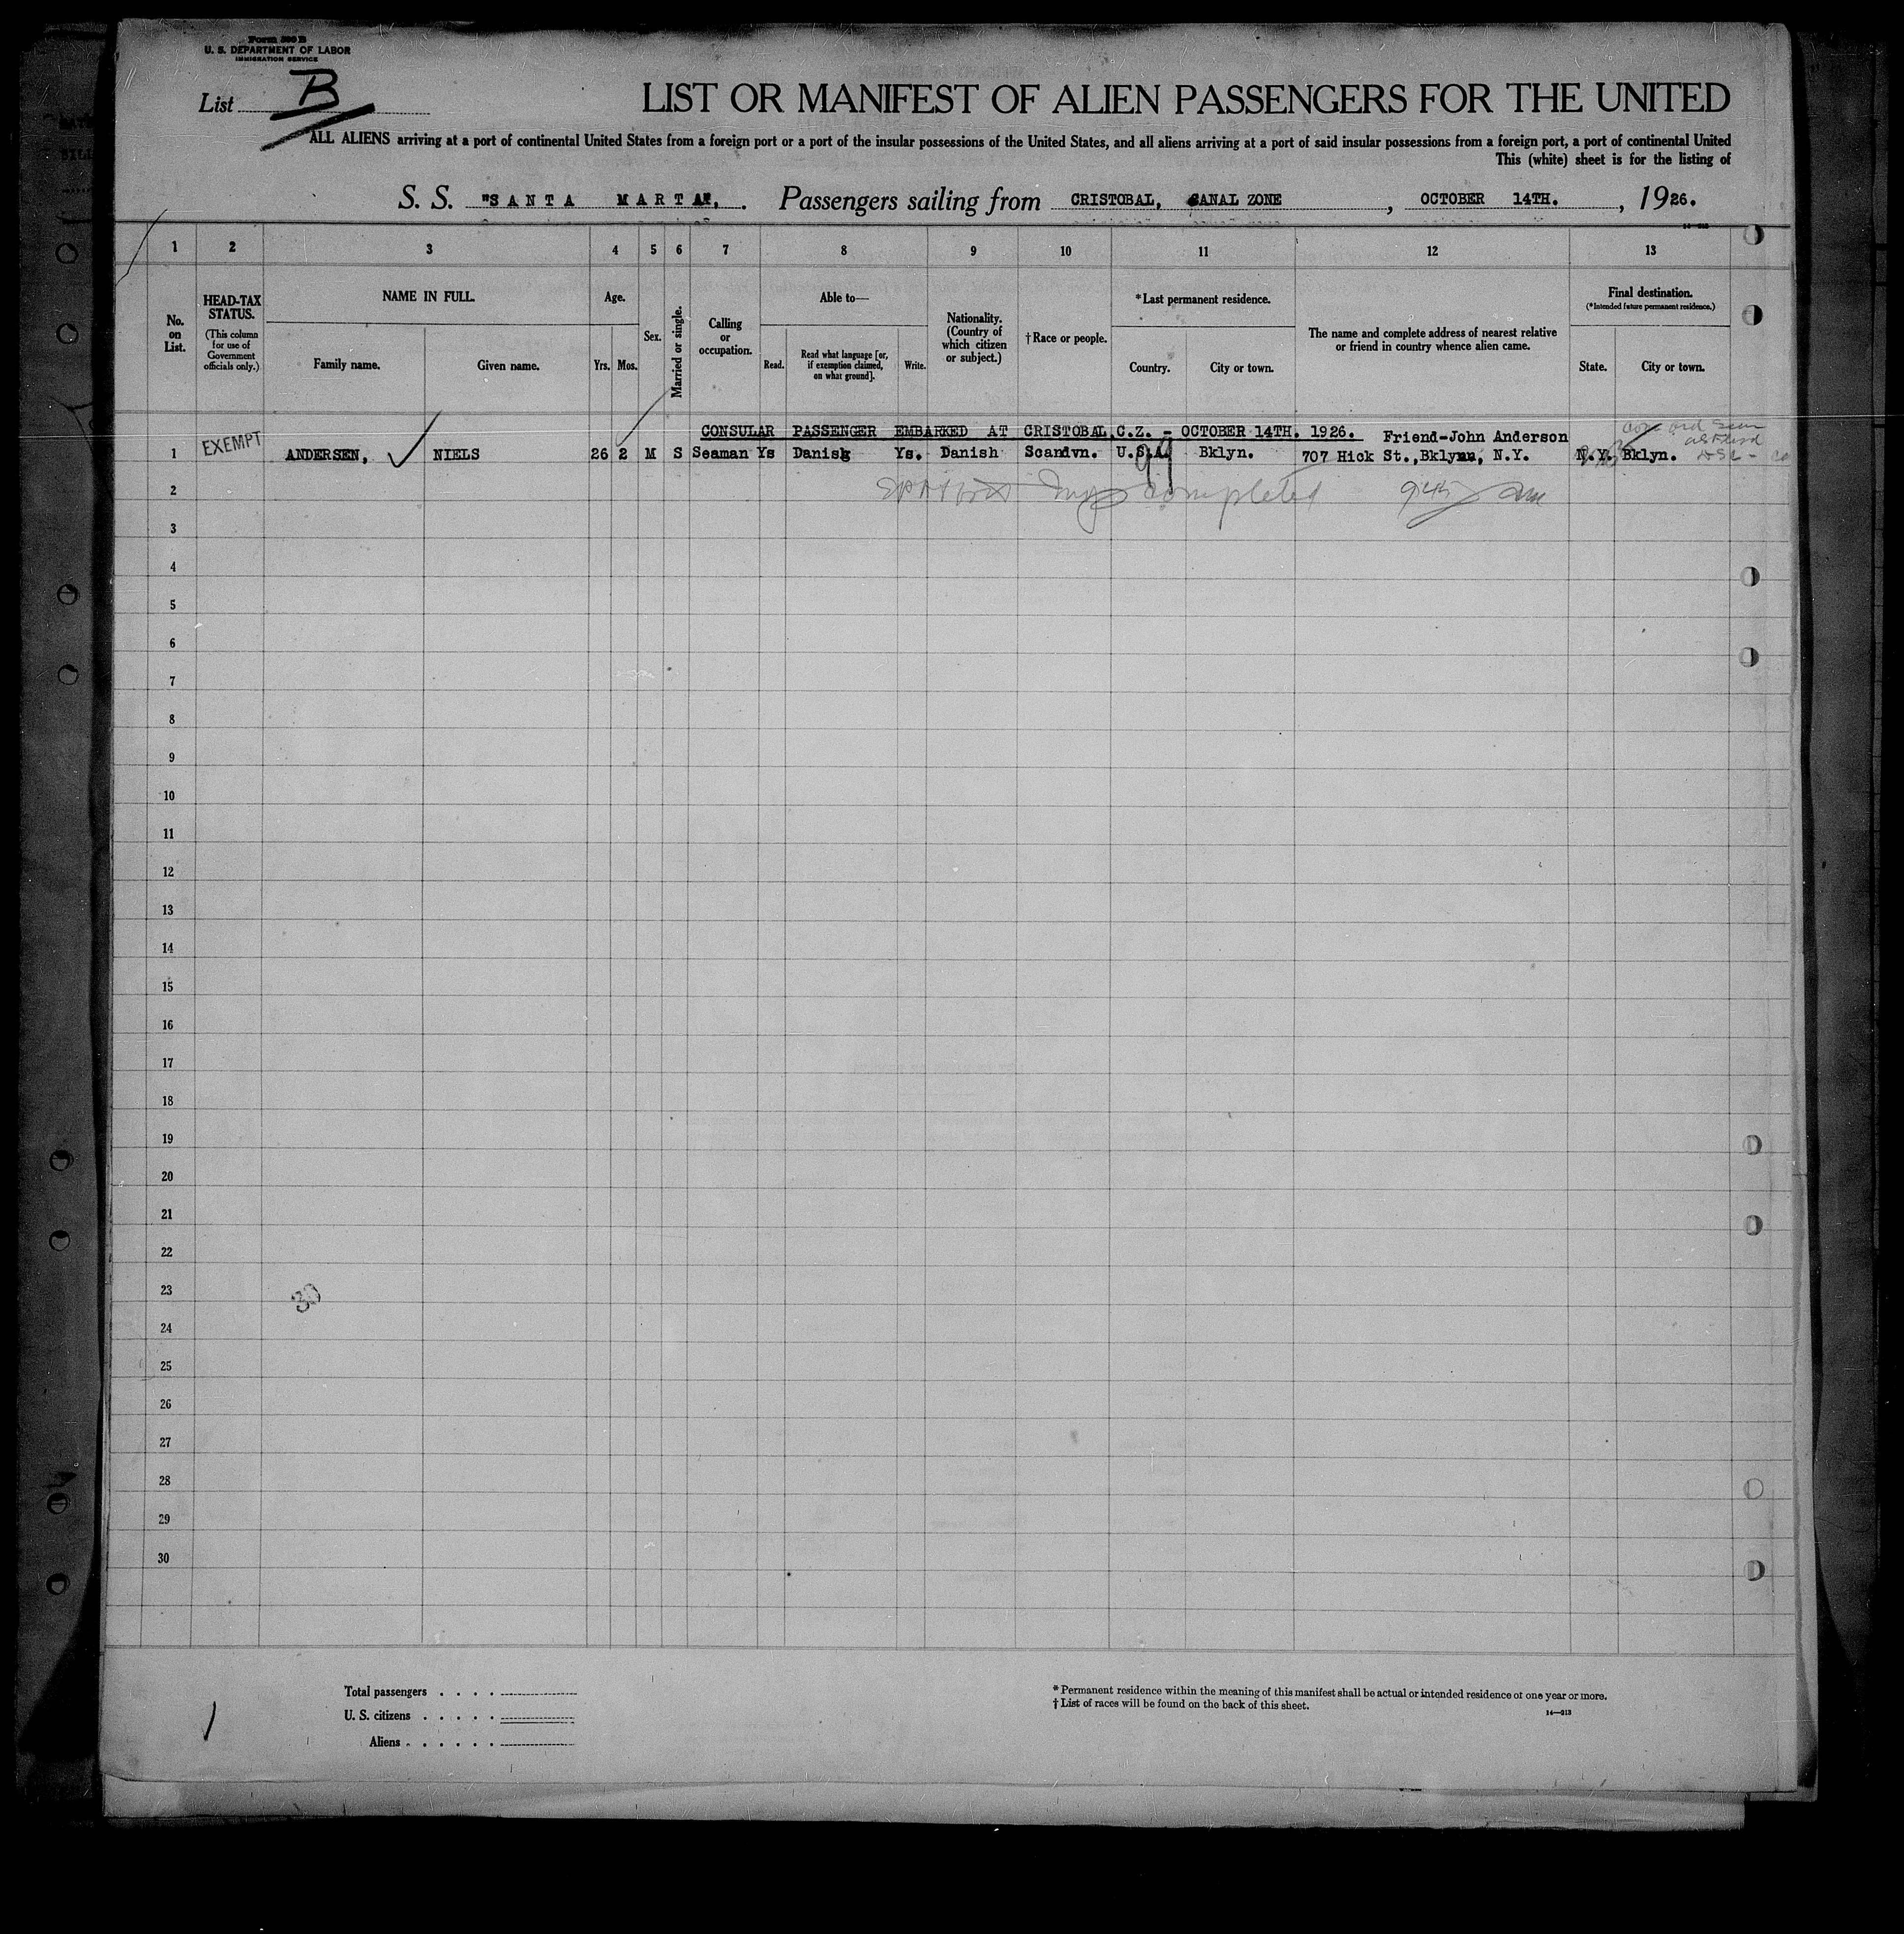 Form 500 B
U. S. DEPARTMENT OF LABOR
IMMIGRATION SERVICE
List B
LIST OR MANIFEST OF ALIEN PASSENGERS FOR THE UNITED
ALL ALIENS arriving at a port of continental United States from a foreign port or a port of the insular possessions of the United States, and all aliens arriving at a port of said insular possessions from a foreign port, a port of continental United
This (white) sheet is for the listing of
S. S. "SANTA MARTA", Passengers sailing from CRISTOBAL, CANAL ZONE, OCTOBER 14TH., 1926.
1 2 3 4 5 6 7 8 9 10 11 12 13
No. on List.
HEAD-TAX STATUS.
(This column for use of Government officials only.)
NAME IN FULL.
Family name. Given name.
Age.
Yrs. Mos.
Sex.
Married or single.
Calling or occupation.
Able to—
Read. Read what language [or, if exemption claimed, on what ground]. Write.
Nationality. (Country of which citizen or subject.)
†Race or people.
*Last permanent residence.
Country. City or town.
The name and complete address of nearest relative or friend in country whence alien came.
Final destination.
(*Intended future permanent residence.)
State. City or town.
CONSULAR PASSENGER EMBARKED AT CRISTOBAL, C.Z. - OCTOBER 14TH. 1926. Friend-John Anderson
1 EXEMPT ANDERSEN, NIELS 26 2 M S Seaman Ys Danish Ys. Danish Scandvn. U.S.A. Bklyn. 707 Hick St.,Bklyn, N.Y. N.Y. Bklyn.
2 completed
3
4
5
6
7
8
9
10
11
12
13
14
15
16
17
18
19
20
21
22
23
30
24
25
26
27
28
29
30
Total passengers . . . .
U. S. citizens . . . . .
Aliens . . . . . .
* Permanent residence within the meaning of this manifest shall be actual or intended residence of one year or more.
† List of races will be found on the back of this sheet.
14—213